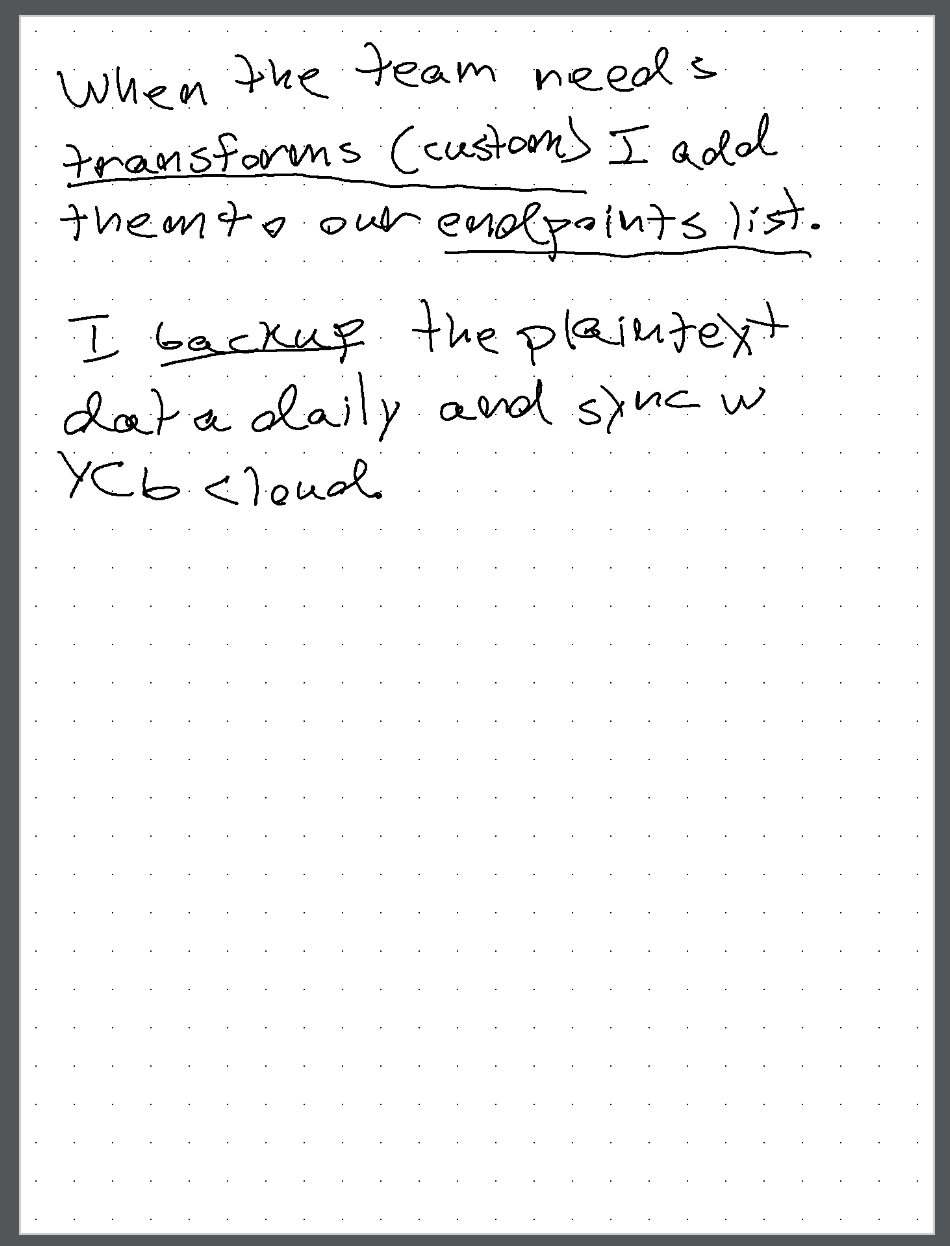 When the team needs
transforms (custom) I add
them to our endpoints list.
I backup the plaintext
data daily and sync w
YCb cloud.